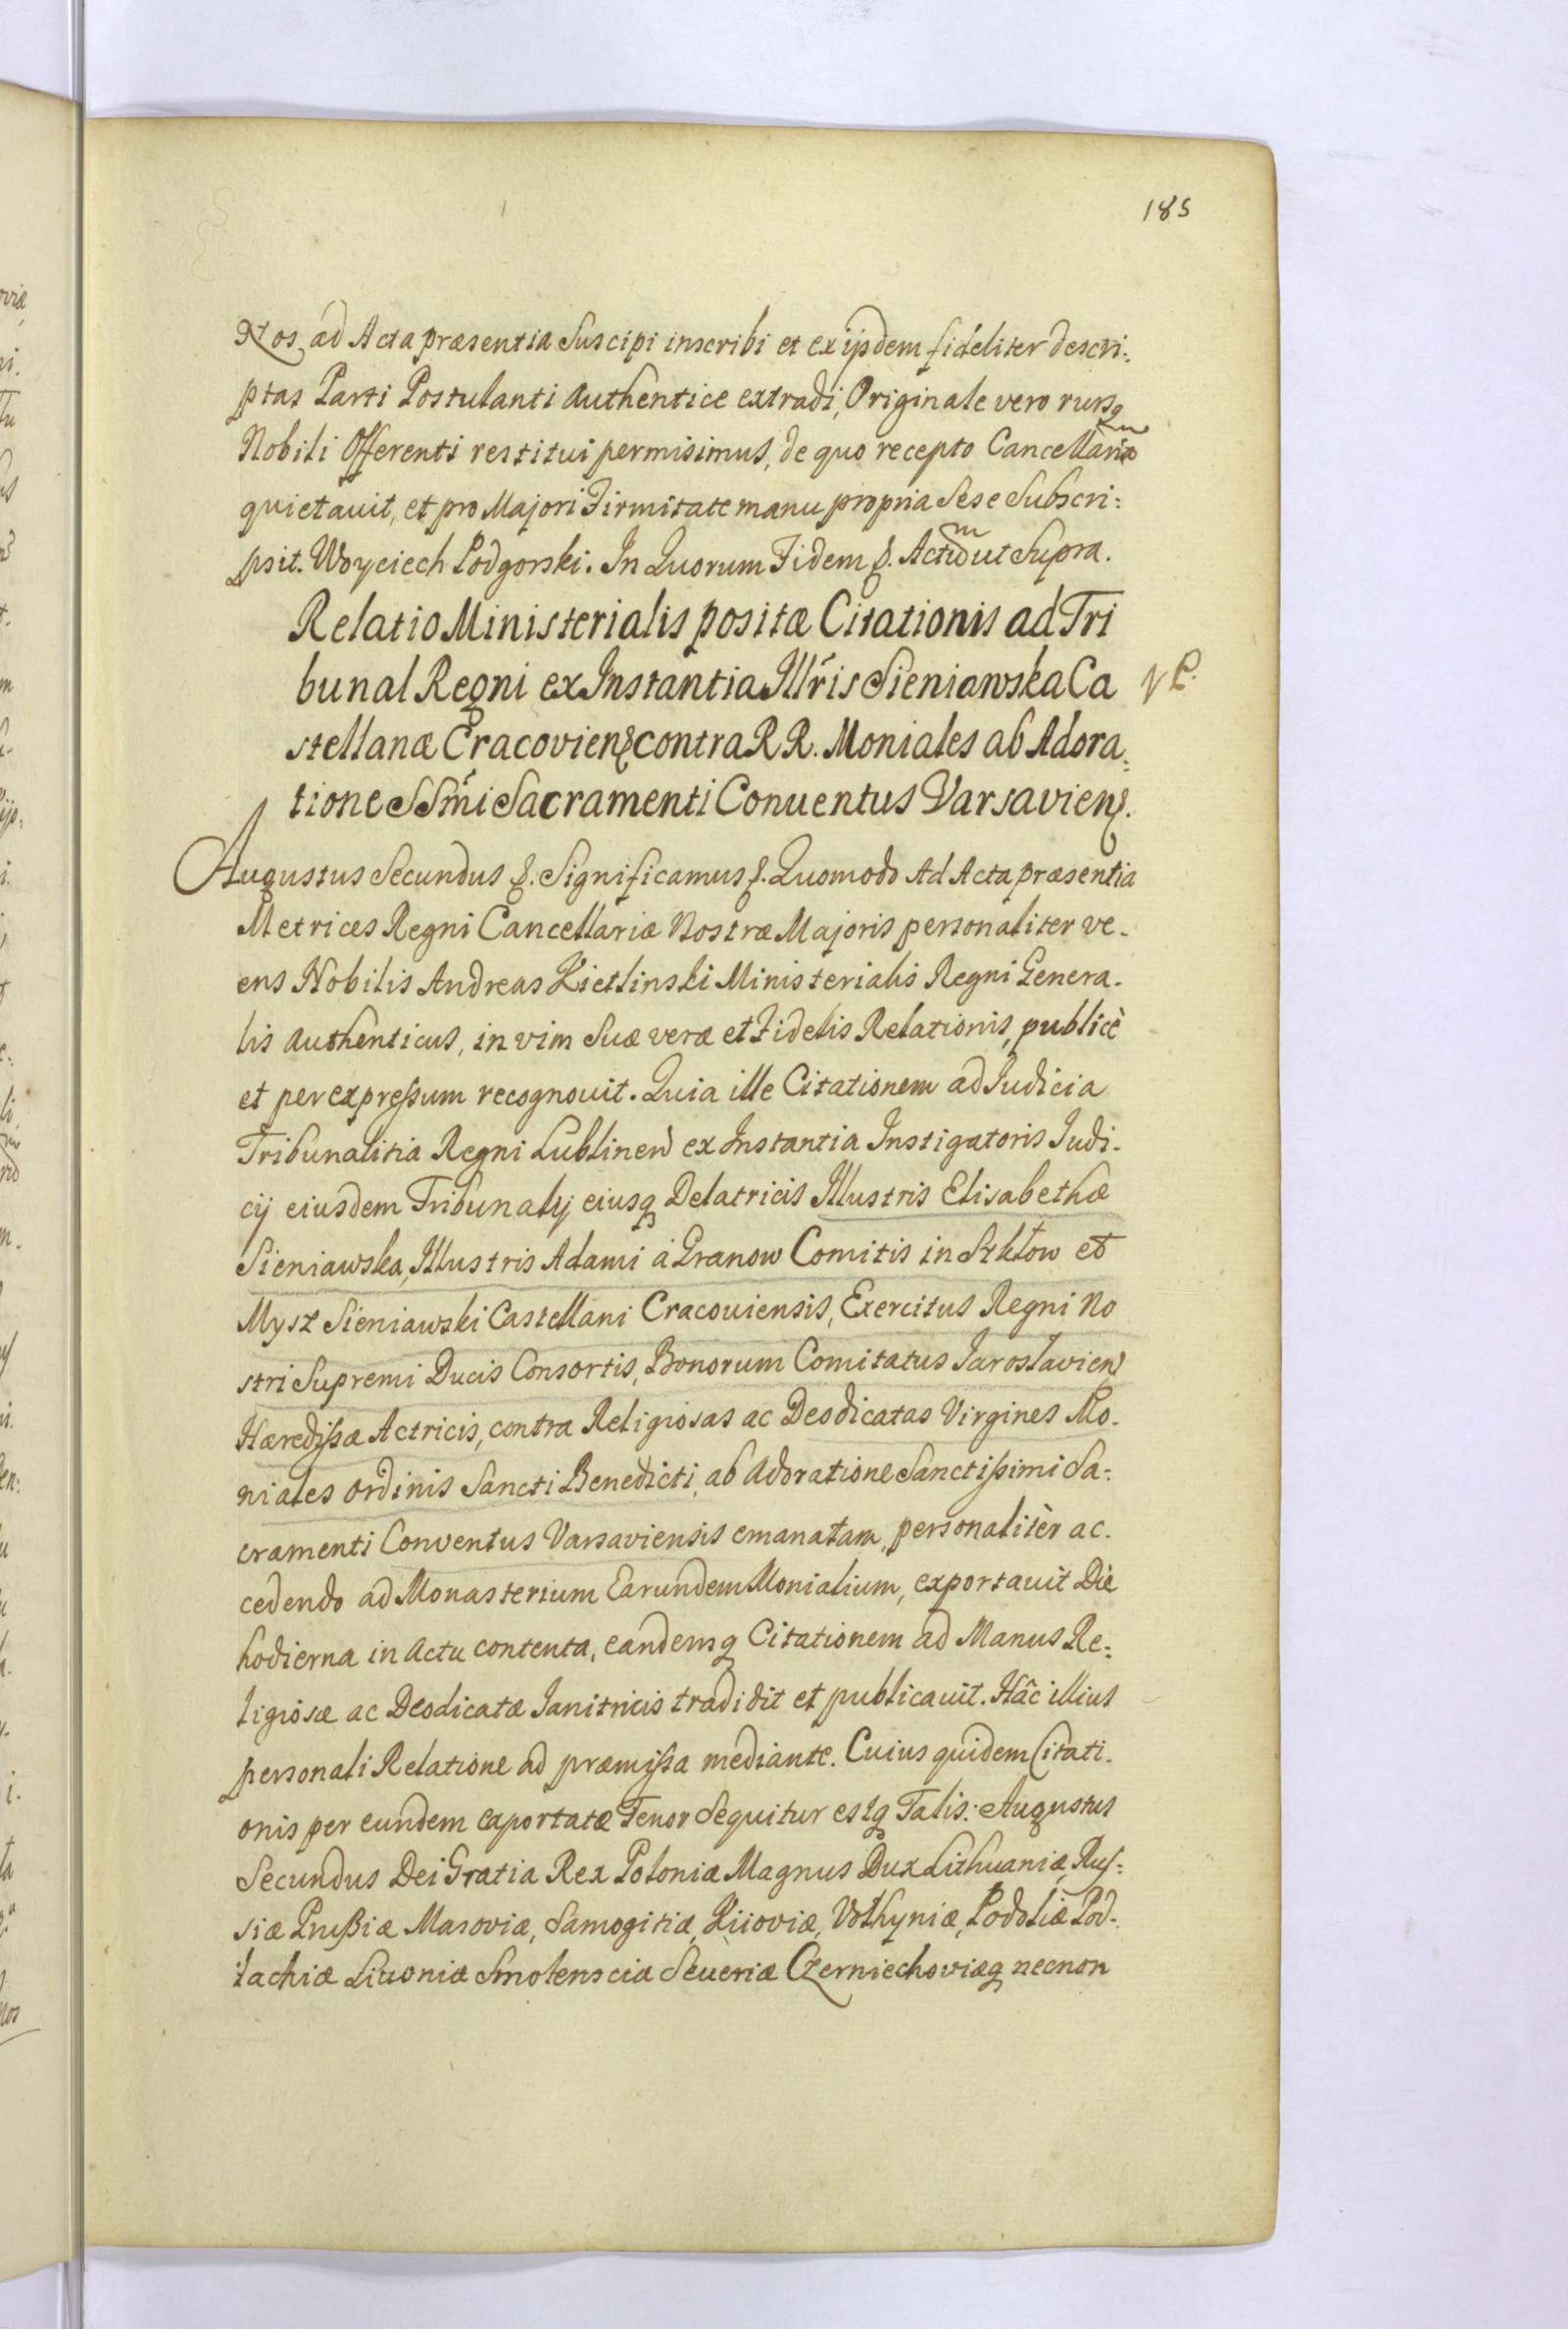 185
Nos, ad Acta præsentia Suscipi inscribi et ex ijsdem fideliter descri:
ptas Parti Postulanti authentice extradi, Originale vero rursq
Nobili Offerenti restitui permisimus, de quo recepto Cancellaria
quietavit, et pro Majori Firmitate manu propria Sese Subscri:
psit. Woyciech Podgorski. In Quorum Fidem &. Actum ut Supra.
Relatio Ministerialis positæ Citationis ad Tri
bunal Regni ex Instantia Illris Sieniawska Ca
stellanæ Cracovien contra R R. Moniales ab Adora:
tione SSmi Sacramenti Conuentus Varsavien.
Augustus Secundus &. Significamus &. Quomodo Ad Acta præsentia
Metrices Regni Cancellariæ Nostræ Majoris personaliter ve-
ens Nobilis Andreas Kietlinski Ministerialis Regni Genera-
lis authenticus, in vim Suæ veræ et Fidelis Relationis, publicè
et per expressum recognouit. Quia ille Citationem ad Iudicia
Tribunalitia Regni Lublinen ex Instantia Instigatoris Iudi-
cij eiusdem Tribunalij eiusq Delatricis Illustris Elisabethæ
Sieniawska, Illustris Adami á Granow Comitis in Szkłow et
Mysz Sieniawski Castellani Cracouiensis, Exercitus Regni No
stri Supremi Ducis Consortis, Bonorum Comitatus Iaroslavien
Hæredissæ Actricis, contra Religiosas ac Deodicatas Virgines Mo-
niales ordinis Sancti Benedicti, ab Adoratione Sanctissimi Sa-
cramenti Conventus Varsaviensis emanatam, personalitèr ac-
cedendo ad Monasterium Earundem Monialium, exportauit Die
hodierna in actu contenta, eandemq Citationem ad Manus Re:
ligiosæ ac Deodicatæ Ianitricis tradidit et publicauit. Hâc illius
personali Relatione ad præmissa mediante. Cuius quidem Citati-
onis per eundem exportatæ Tenor Sequitur estq Talis: Augustus
Secundus Dei Gratia Rex Poloniæ Magnus Dux Lithuaniæ, Rus:
siæ Prussiæ Masoviæ, Samogitiæ, Kiioviæ, Volhyniæ, Podoliæ Pod-
lachiæ Liuoniæ Smolenscia Seueriæ Czerniechoviæq necnon